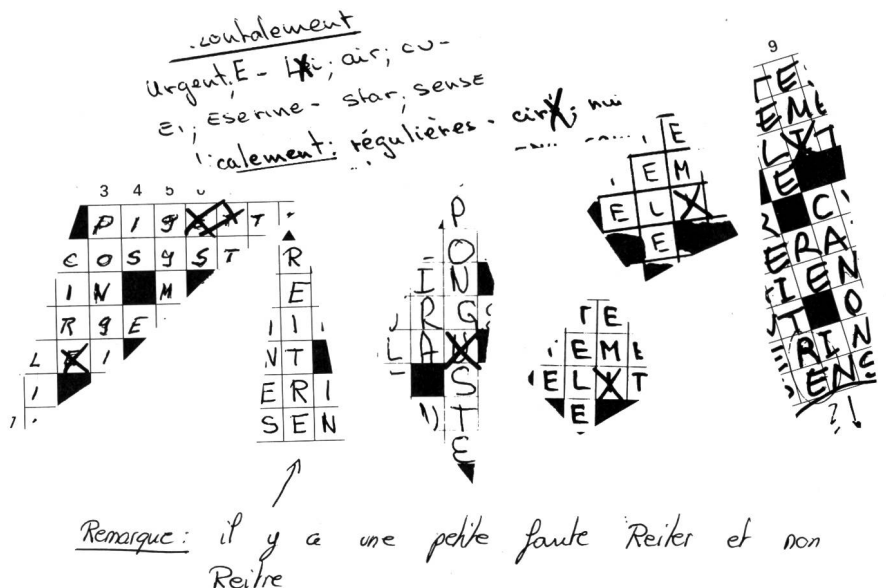 zontalement
urgent; E - air; cu-
Eserine - star; sense
calement: régulières -
3 4 5
P I
C O S T
I N M
R G E
L E I
I
R
E
I
N T
E R I
S E N
P
O
I N
R G
L A
S
T
E
E
E M
E L
E
E
E M E
E L T
E
9
E
E M E
L T
E
C
E R A
I E N
T O
R I N
E N S
Remarque: il y a une petite faute Reiter et non
Reitre